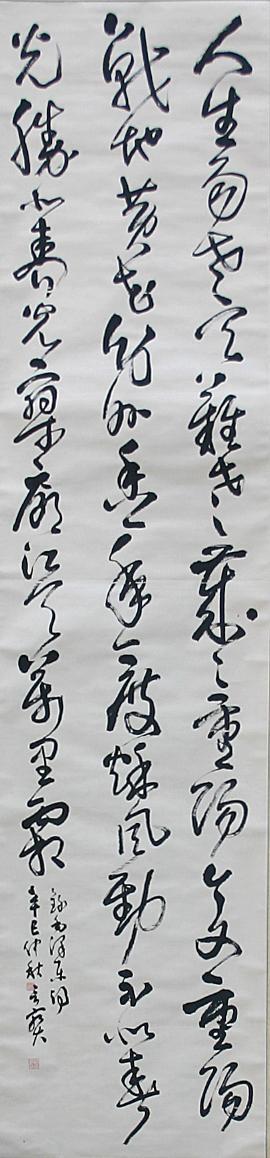 人生易老天難老歲々重陽今又重陽
戰地黃花分外香一年一度秋風勁不似春
光勝似春光寥廓江天萬里霜
錄毛澤東詞
辛巳仲秋